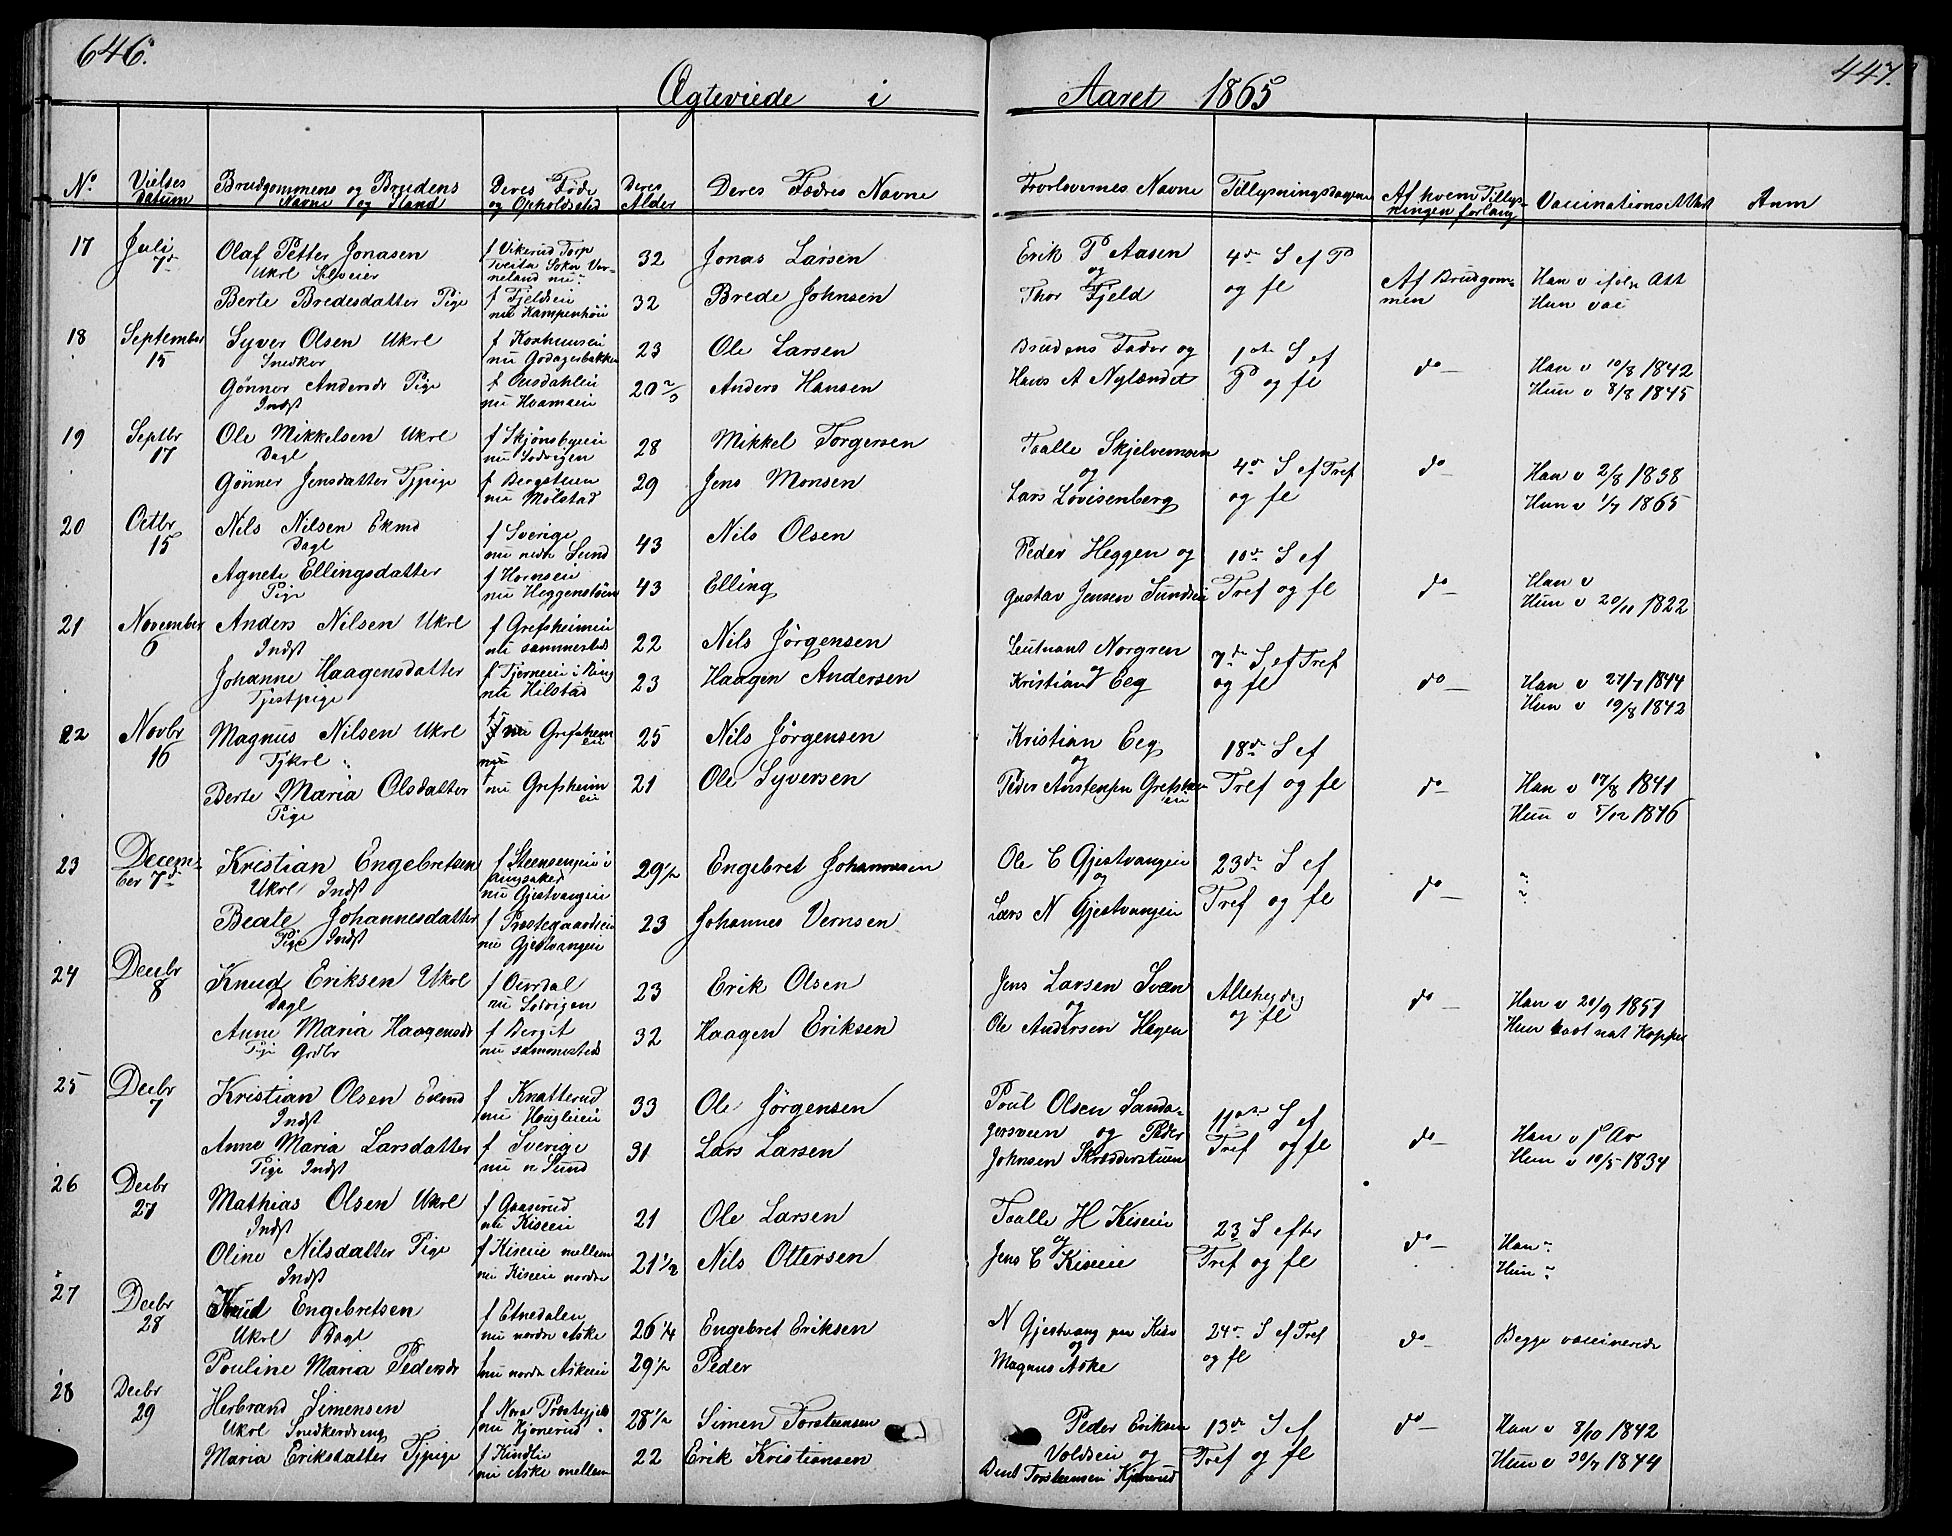 646.
447.
Ægteviede i Aaret 1865
No
Vielses Datum
Brudgommens og Brudens Navne og Stand
Deres Føde og Opholdssted
Deres Alder
Deres Fædres Navne
Forlovernes Navne
Tillysningsdagene
Af hvem Tillysningen forlang
Vaccinations Att
Anm
17 Juli 7de
Olaf Petter Jonasen
Ukrl
f Vikerud Torp
32
Jonas Larsen
Erik P Aasen
og
Thor Fjeld
4de S ef P
og fl
Af Brudgommen
Han v ifølge Att
Hun vac
Berte Bredesdatter Pige
f Fjeldseie
nu Kampenhöie
32
Brede Johnsen
18 September 15
Syver Olsen Ukrl
Snedker
f Korhuuseie
23
Ole Larsen
Brudens Fader og
Hans A Nylændet
1ste S ef
P og fl
do
Han v 10/8 1842
Hun v 8/8 1845
Gønner Andersdr Pige
Indst
nu Hvamseie
20 2/3
Anders Hansen
19 Septbr 17
Ole Mikkelsen Ukrl
Dagl
f Skjönsbyeie
nu Sodvigen
28
Mikkel Torgersen
Taalle Skjelvemsen
og
Lars Lovisenberg
4de S ef Tref
og fl
do
Han v 2/8 1838
Hun v 1/7 1865
Gønner Jensdatter Tjpige
f Bergstuen
nu Molstad
29
Jens Monsen
20 Octbr 15
Nils Nilsen Ekmd
Dagl
f Sverige
nu nedr Sund
43
Nils Olsen
Peder Heggen og
Gustav Jensen Sundeie
10de S ef
Tref og fl
do
Han v
Hun v 20/11 1822
Agnete Ellingsdatter
Pige
f Hornseie
nu Heggenstöen
43
Elling
21 November 6
Anders Nilsen Ukrl
Indst
f Grefsheimeie
nu sammesteds
22
Nils Jörgensen
Leutnant Norgren
og
Kristian Eeg
7de S ef Tref
og fl
do
Han v 27/7 1844
Hun v 19/8 1842
Johanne Haagensdatter
Tjestpige
f Tjerneie i Ring
nu Hilstad
23
Haagen Andersen
22 Novbr 16
Magnus Nilsen Ukrl
Tjkrl
nu Grefsheim
eie
25
Nils Jörgensen
Kristian Eeg
og
Peder Austensen Grefsheim
eie
18de S ef
Tref og fl
do
Han v 17/8 1841
Hun v 5/12 1846
Berte Maria Olsdatter
Pige
nu Grefsheim
eie
21
Ole Syversen
23 December 7de
Kristian Engebretsen
Ukrl Indst
f Steensengeie i
Ringsaker
nu Gjestvangeie
29 1/2
Engebret Johannesen
Ole C Gjestvangeie
og
Lars N Gjestvangeie
23de S ef
Tref og fl
do
Beate Johannesdatter
Pige Indst
f Prestegaardseie
nu Gjestvangeie
23
Johannes Vernsen
24 Decbr 8
Knud Eriksen Ukrl
Dagl
f Ourdal
nu Sodvigen
23
Erik Olsen
Jens Larsen Svæn
og
Ole Andersen Hagen
Allehelgdg
og fl
do
Han v 20/9 1851
Hun havt nat Kopper
Anne Maria Haagensdr
Pige Grdbr
f Bergit
nu sammesteds
32
Haagen Eriksen
25 Decbr 7
Kristian Olsen Ekmd
Indst
f Knatterud
nu Hauglieie
33
Ole Jörgensen
Poul Olsen Sandagersveen og Peder
Johnsen Skrædderstuen
11te S ef
Tref og fl
do
Hun v 10/5 1834
Anne Maria Larsdatter
Pige Indst
f Sverige
nu n Sund
31
Lars Larsen
26 Decbr 27
Mathias Olsen Ukrl
Indst
f Gaaserud
nu Kiseie
21
Ole Larsen
Taalle H Kiseie
og
Jens C Kiseie
23 S efter
Tref og fl
do
Han
Hun
Oline Nilsdatter Pige
Indst
f Kiseie mellem
nu Kiseie nordre
21 1/2
Nils Ottersen
27 Decbr 28
Knud Engebretsen
Ukrl Dagl
f Etnedalen
nu nordre Aske
26 1/4
Engebret Eriksen
N Gjestvang
og
Magnus Aske
24de S ef Tref
og fl
do
Begge vaccinerede
Pouline Maria Pedersdr
nu nordre Askeeie
29 1/2
Peder
28 Decbr 29
Herbrand Simensen
Ukrl Snedkerdreng
nu Kjonerud
28 1/2
Simen Torstensen
Peder Eriksen
Voldseie og
Torstensen Kjonerud
13de S ef
Tref og fl
do
Han v 8/10 1842
Hun v 30/7 1844
Maria Eriksdatter Tjpige
f Kindlie
nu Aske mellem
22
Erik Kristiansen